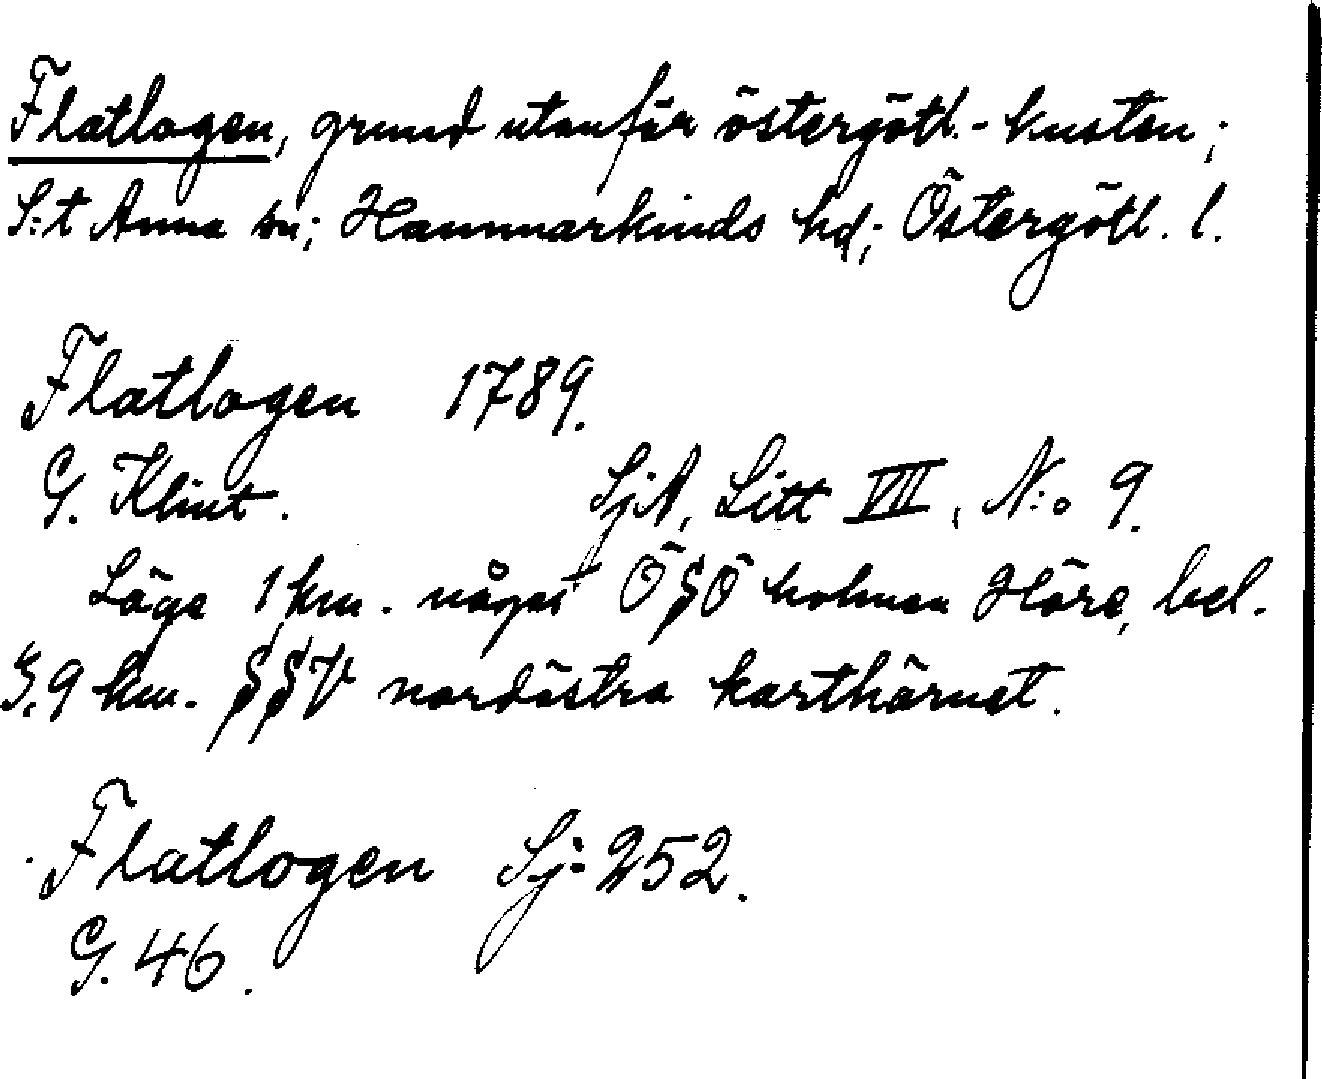 Flatlogen, grund utanför östergötl.-kusten;
S:t Anna sn; Hammarkinds hd; Östergötl. l.
Flatlogen 1789.
G. Klint. SjA, Litt VII, N:o 9.
Läge 1 km. något ÖSÖ holmen Häre, bel.
9 km. SSV nordöstra karthörnet.
Flatlogen Sj: 252.
G. 46.